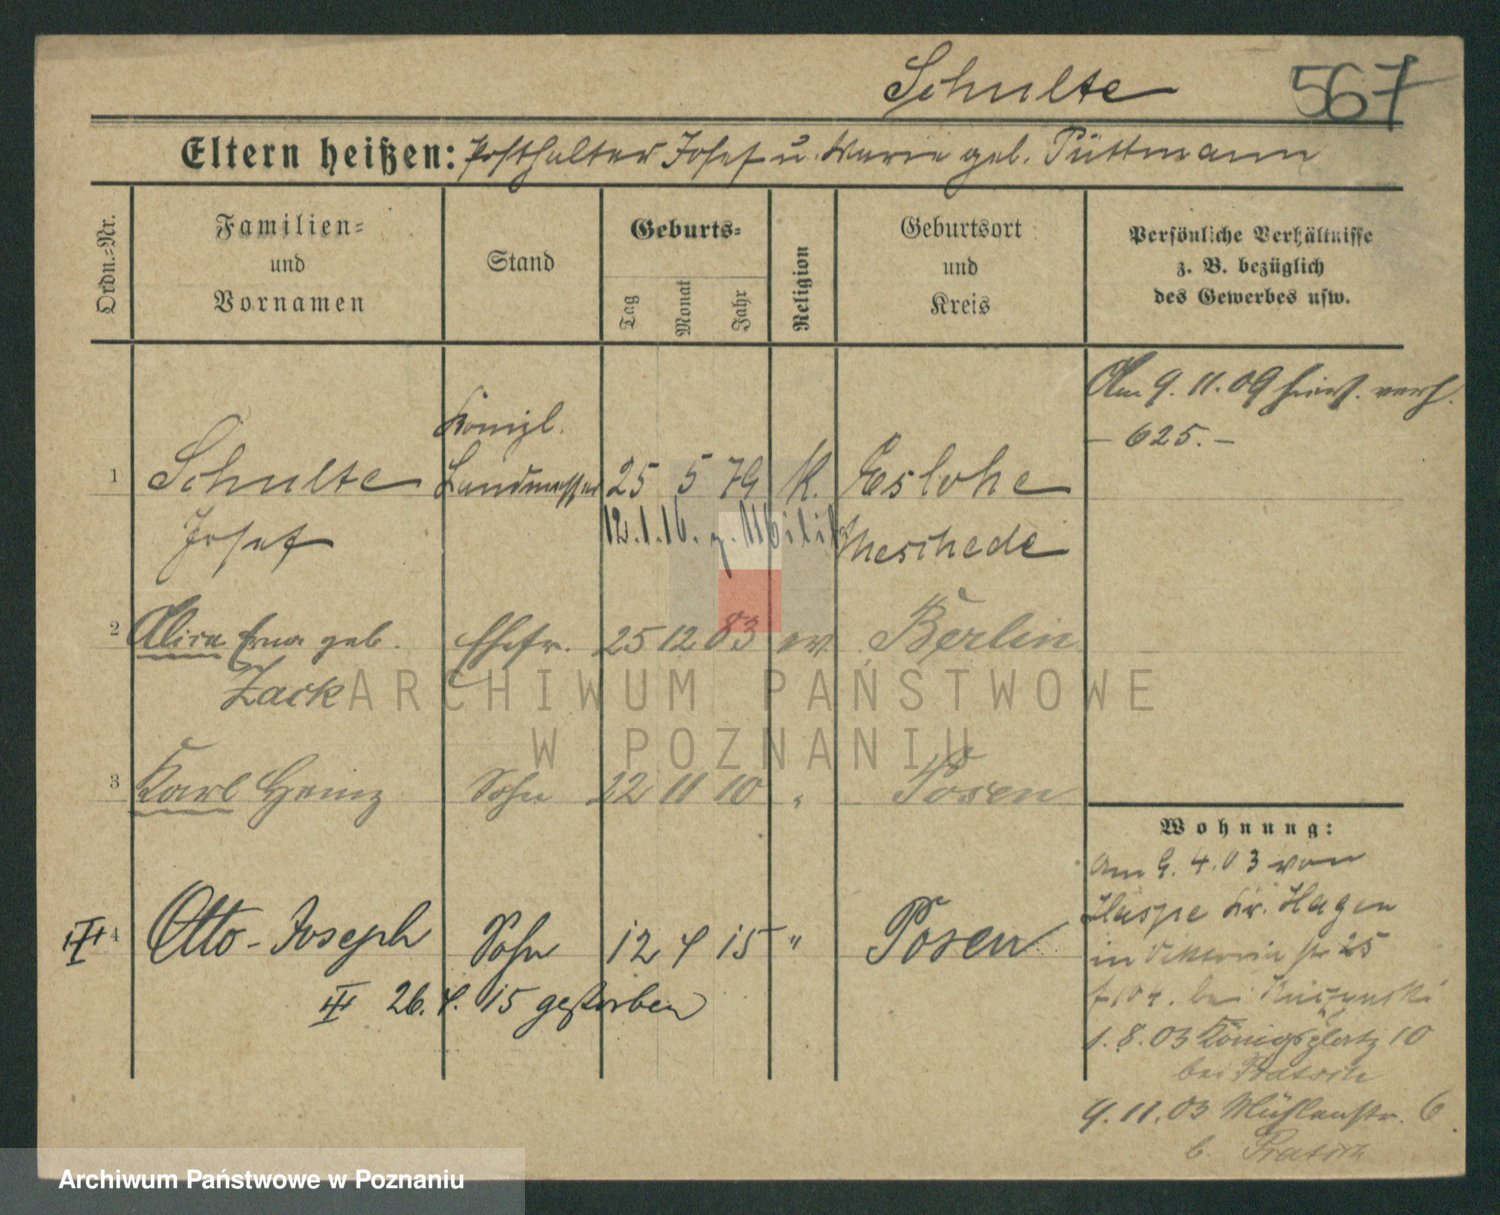 Schulte 567
Eltern heißen: Posthalter Josef u. Marie geb. Püttmann
Ordn.-Nr.
Familien-
und
Vornamen
Stand
Geburts-
Tag
Monat
Jahr
Religion
Geburtsort
und
Kreis
Persönliche Verhältnisse
z. B. bezüglich
des Gewerbes usw.
Am 9. 11. 09 hier verh.
- 625. -
Königl.
1 Schulte Landmesser 25 5 79 K. Eslohe
Josef 12.1.16. z. Milit Meschede
2 Alice Erna geb. Ehefr. 25 12 83 ev. Berlin
Zack
3 Karl Heinz Sohn 22 11 10 " Posen
III 4 Otto-Joseph Sohn 12 4 15 " Posen
III 26. 4. 15 gestorben
Wohnung:
Am 9. 4. 03 von
Haspe Kr. Hagen
in Viktoria str 25
bei
1. 8. 03 Königsplatz 10
bei
9. 11. 03 Mühlenstr. 6
b.
ARCHIWUM PAŃSTWOWE
W POZNANIU
Archiwum Państwowe w Poznaniu